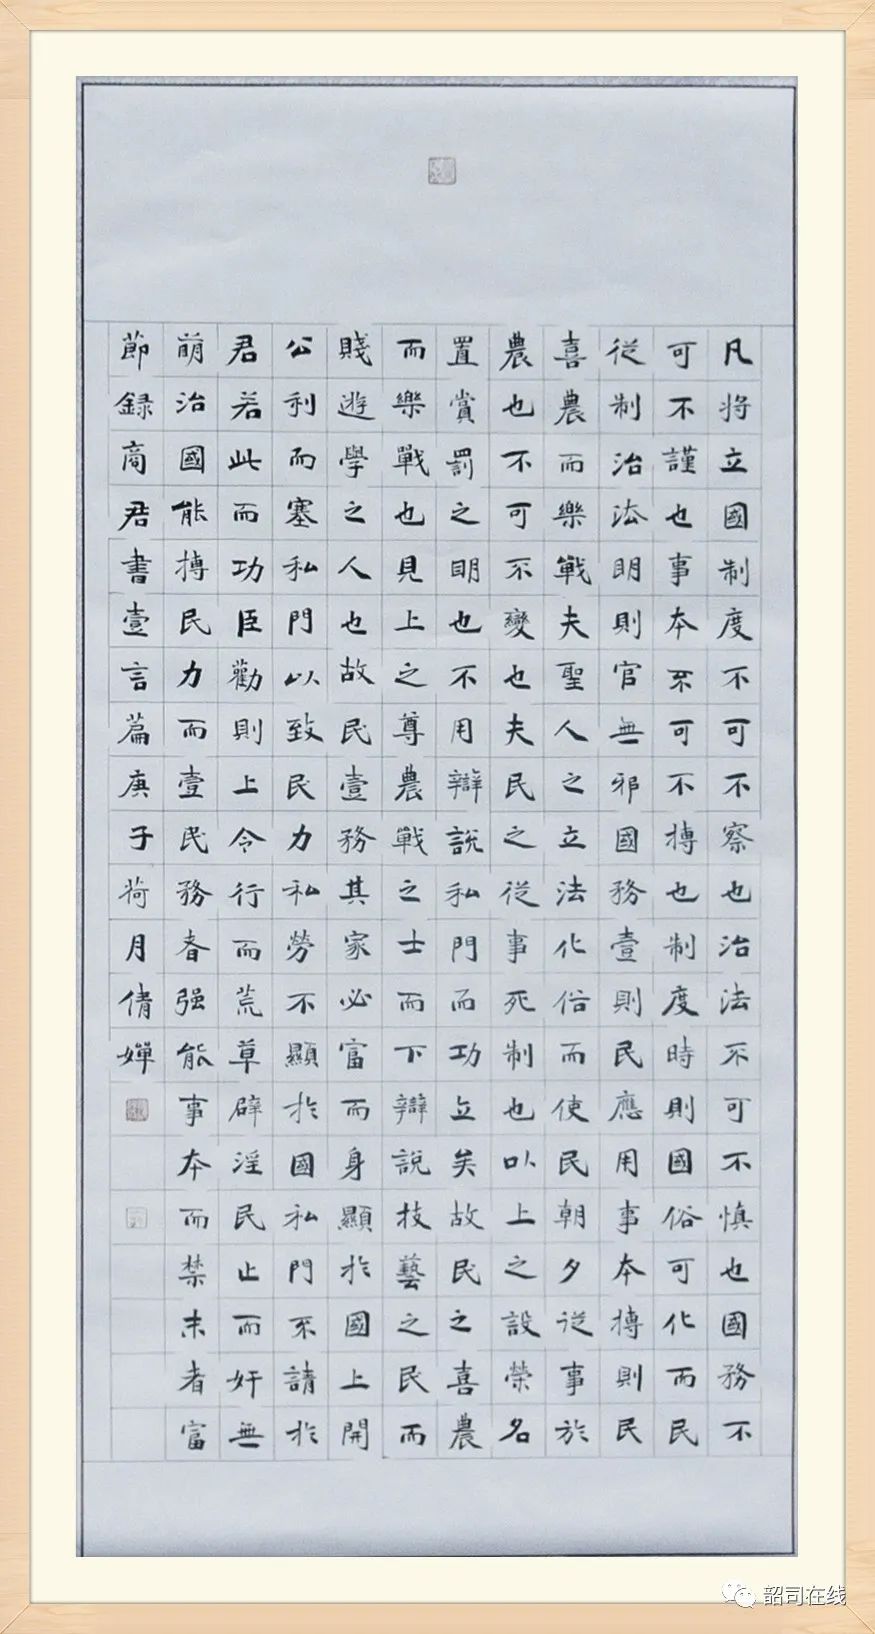 凡將立國制度不可不察也治法不可不慎也國務不
可不謹也事本不可不摶也制度時則國俗可化而民
從制治法明則官無邪國務壹則民應用事本摶則民
喜農而樂戰夫聖人之立法化俗而使民朝夕從事於
農也不可不變也夫民之從事死制也以上之設榮名
置賞罰之明也不用辯說私門而功立矣故民之喜農
而樂戰也見上之尊農戰之士而下辯說技藝之民而
賤遊學之人也故民壹務其家必富而身顯於國上開
公利而塞私門以致民力私勞不顯於國私門不請於
君若此而功臣勸則上令行而荒草辟淫民止而奸無
萌治國能摶民力而壹民務者強能事本而禁末者富
節録商君書壹言篇庚子荷月倩嬋
韶司在线